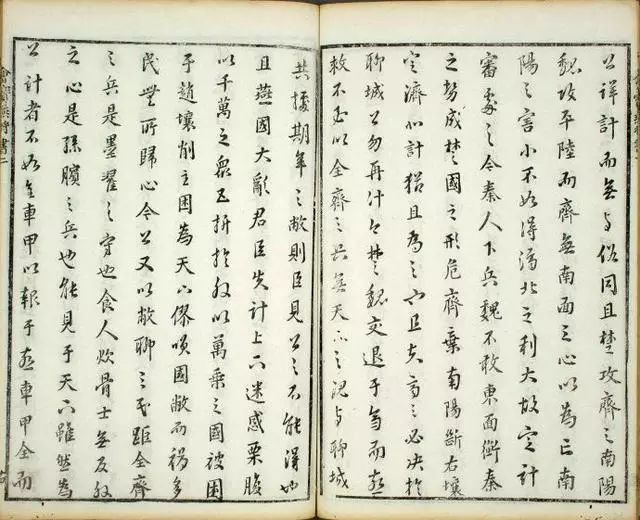 公詳計而無与俗同且楚攻齊之南陽
魏攻平陸而齊無南面之心以為亡南
陽之害小不如得濟北之利大故定計
審處之今秦人下兵魏不敢東面衡秦
之勢成楚國之形危齊棄南陽斷右壤
定濟北計猶且為之也且夫齊之必決於
聊城公勿再計今楚魏交退于齊而燕
救不至以全齊之兵無天下之規与聊城
共據期年之敝則臣見公之不能得也
且燕國大亂君臣失計上下迷惑栗腹
以千萬之衆五折於外以萬乘之國被圍
于趙壤削主困為天下僇咲國敝而禍多
民無所歸心今公又以敝聊之民距全齊
之兵是墨翟之守也食人炊骨士無反外
之心是孫臏之兵也能見于天下雖然為
公計者不如全車甲以報于燕車甲全而